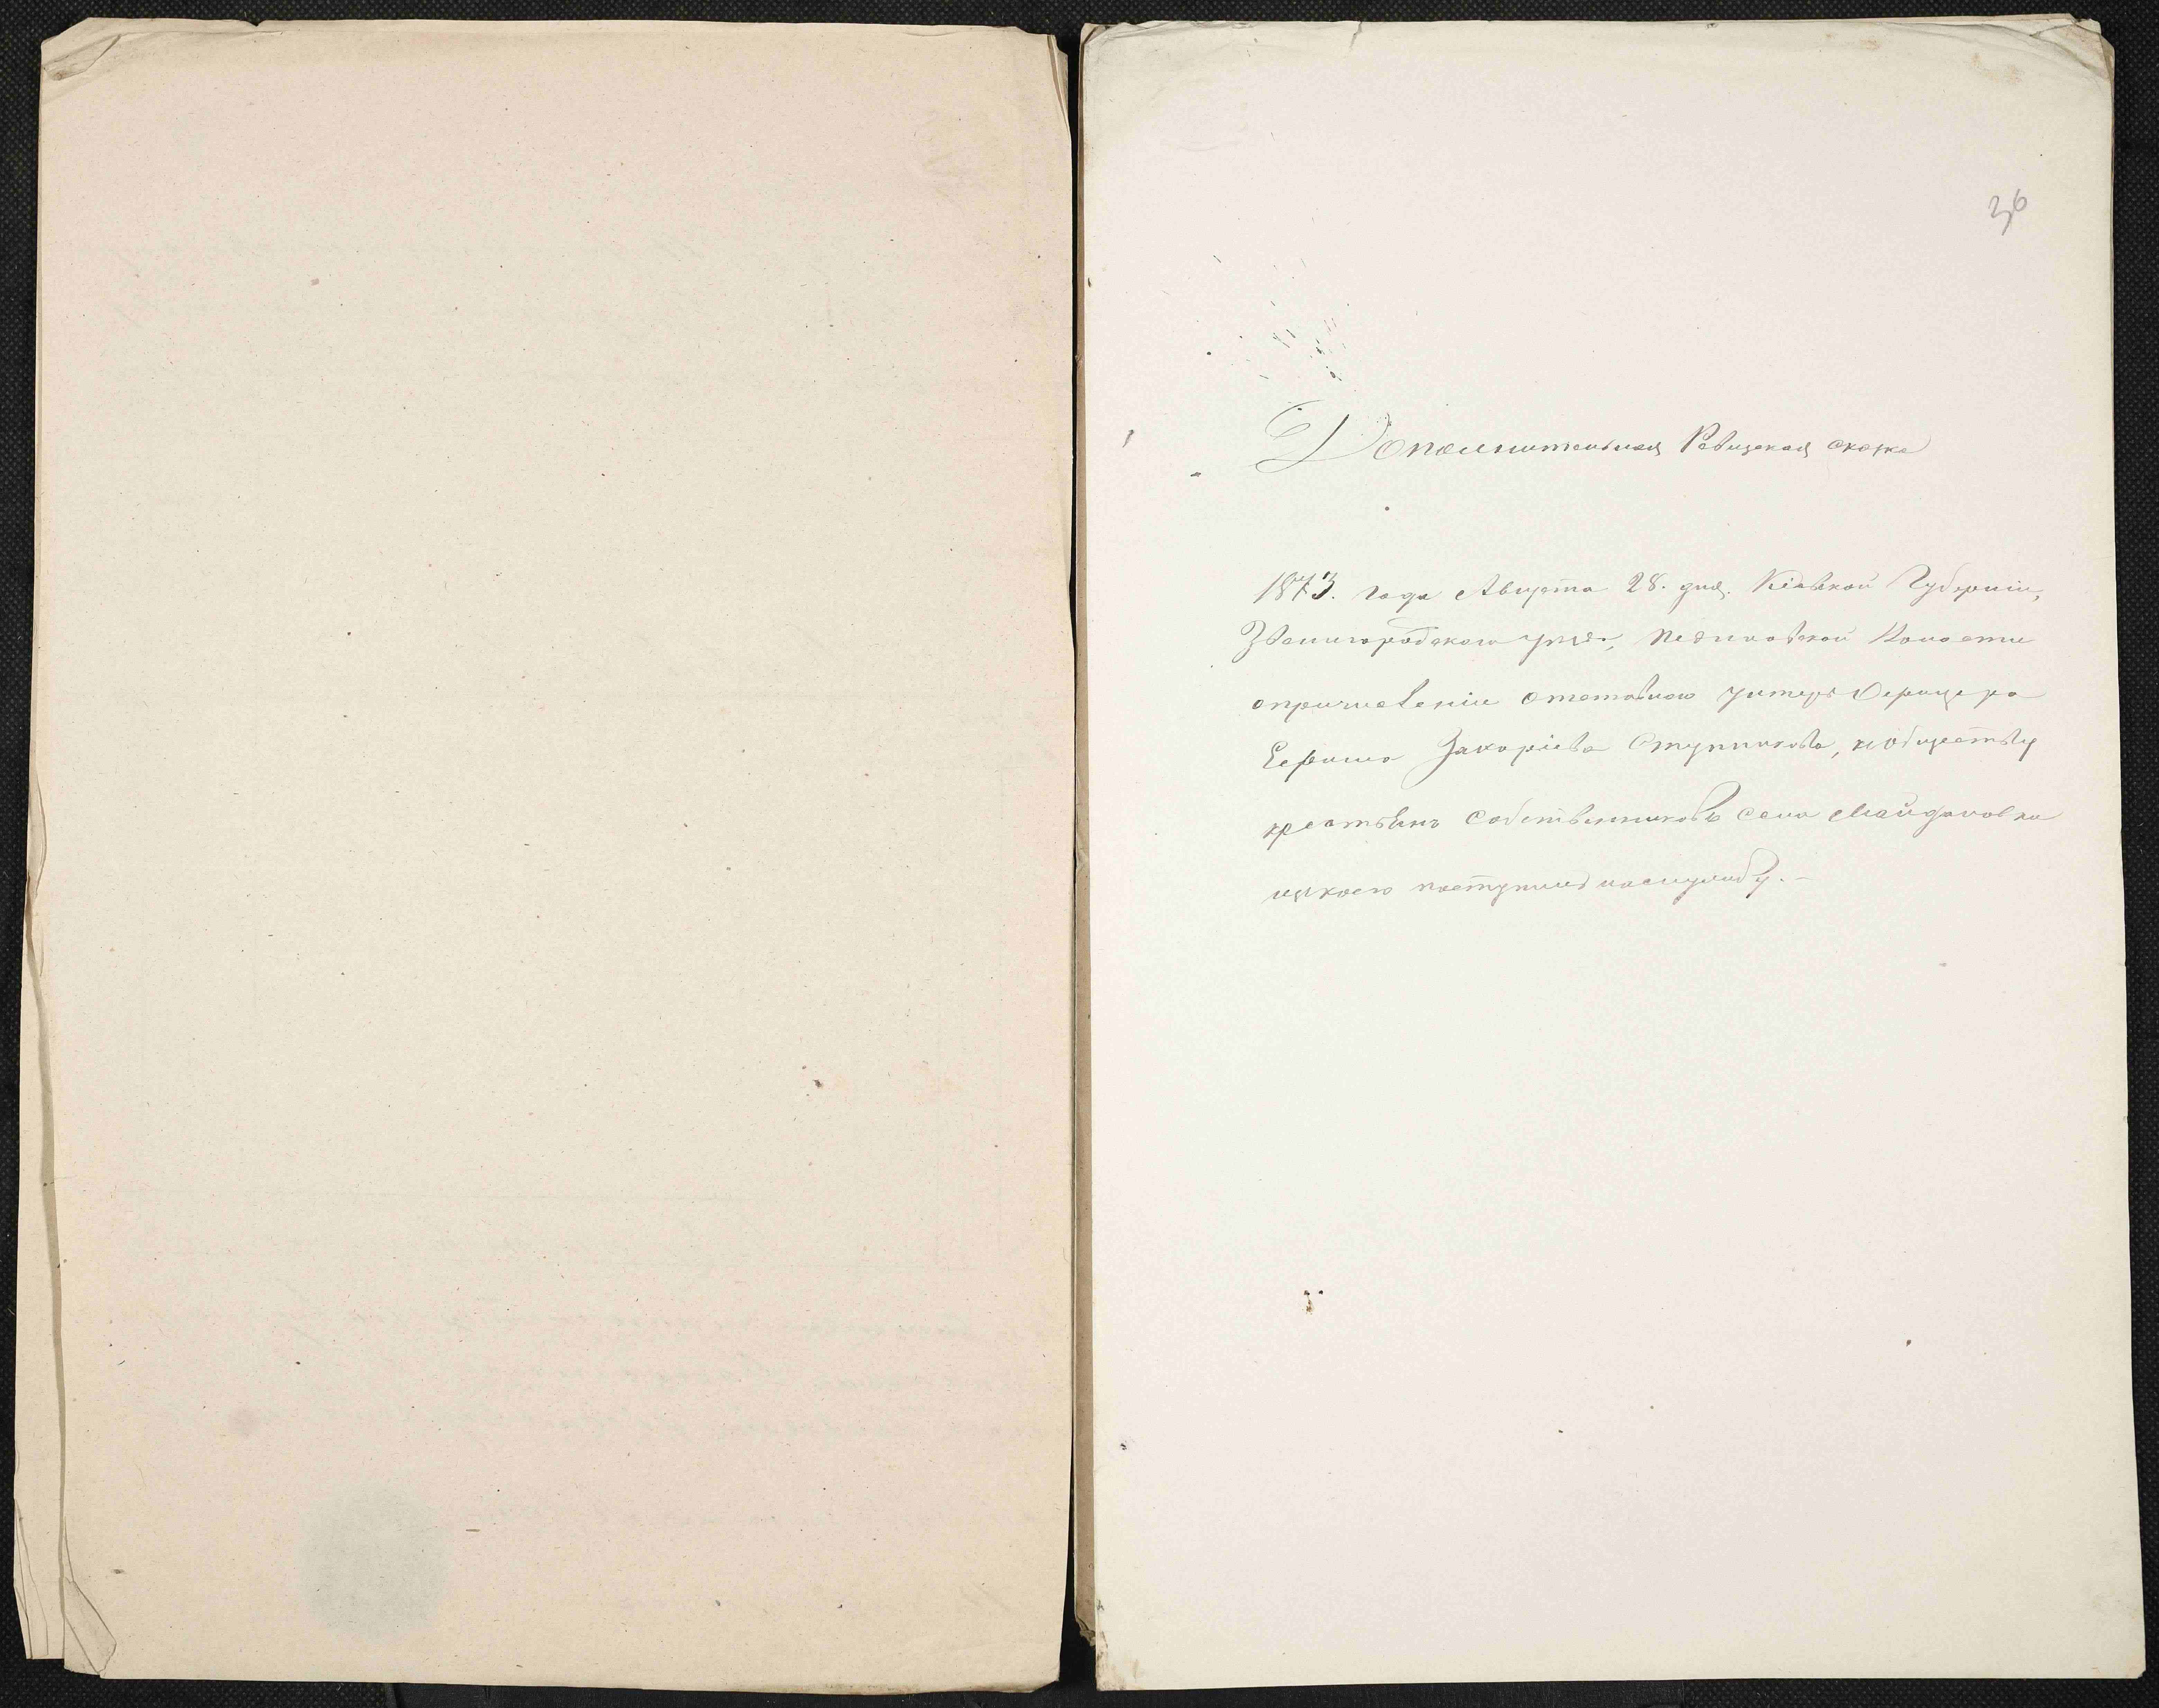 36
Дополнительная Ревизская сказка
1873. года Августа 28. дня. Кіевской Губерніи,
Звенигородскаго уезда, Волости
опричисленіи отставного унтеръ Офицера
Ефима Захаріева Ступникова, кобществу
крестьянъ Собственниковъ села Майдановки
изкоего поступилъ наслужбу. -